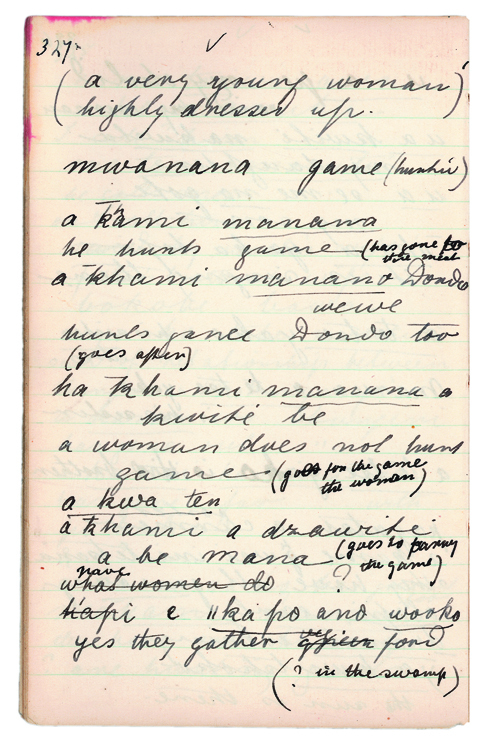 327
(a very young woman)
highly dressed up.
mwanana game (huntin)
a khami manana
he hunts game (has gone for
the meat
a khami manano Dondo
wewe
hunts game Dondo too
(goes after)
ha khami manana a
kwité te
a woman does not hunt
game (goes for the game
the woman)
a kwa ten
a khami a dzawite
a be mana (goes to
the game)
nave
what women do ?
e ka po and
yes they gather food
(? in the swamp)